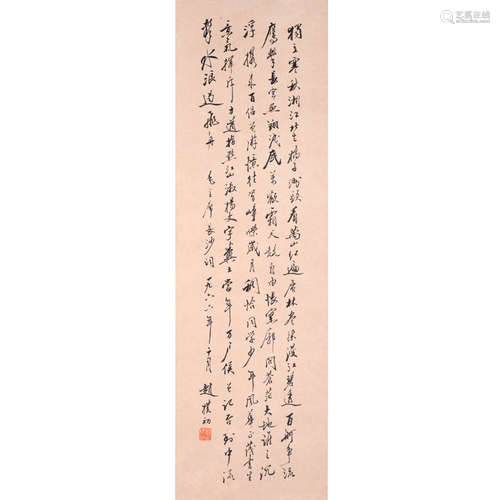 獨立寒秋湘江北去橘子洲頭看萬山紅遍層林盡染漫江碧透百舸爭流
鷹擊長空魚翔淺底萬類霜天競自由悵寥廓問蒼茫大地誰主沉
浮 攜來百侶曾游憶往昔崢嶸歲月稠恰同學少年風華正茂書生
意氣揮斥方遒指點江山激揚文字糞土當年萬户侯曾記否到中流
擊水浪遏飛舟 毛主席長沙詞 一九六六年十月 趙樸初